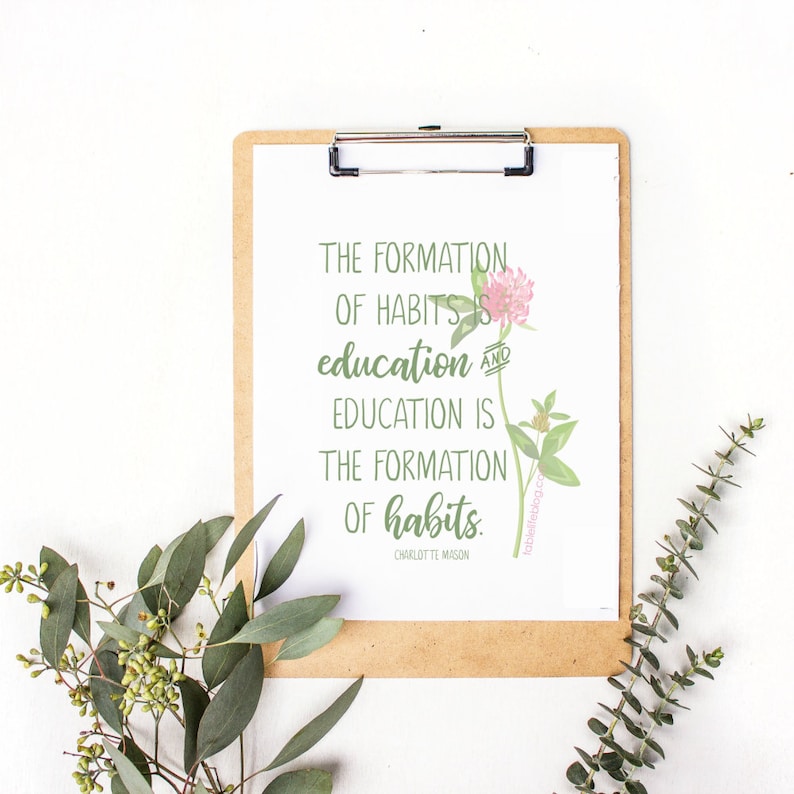 THE FORMATION
OF HABITS IS
education AND
EDUCATION IS
THE FORMATION
OF habits.
CHARLOTTE MASON
tablelifeblog.com